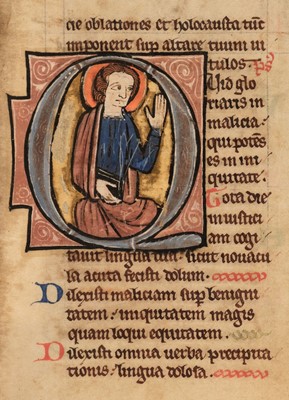 cie oblationes et holocausta tūc
imponent sup altare tuum ui
tulos. ps
Quid glo
riaris in
malicia.
qui potens
es in ini
quitate.
Tota die
iniustici
am cogi
tauit lingua tua. sicut nouacu
la acuta fecisti dolum.
Dilexisti maliciam sup benigni
tatem. iniquitatem magis
quam loqui equitatem.
Dilexisti omnia uerba precipita
tionis. lingua dolosa.